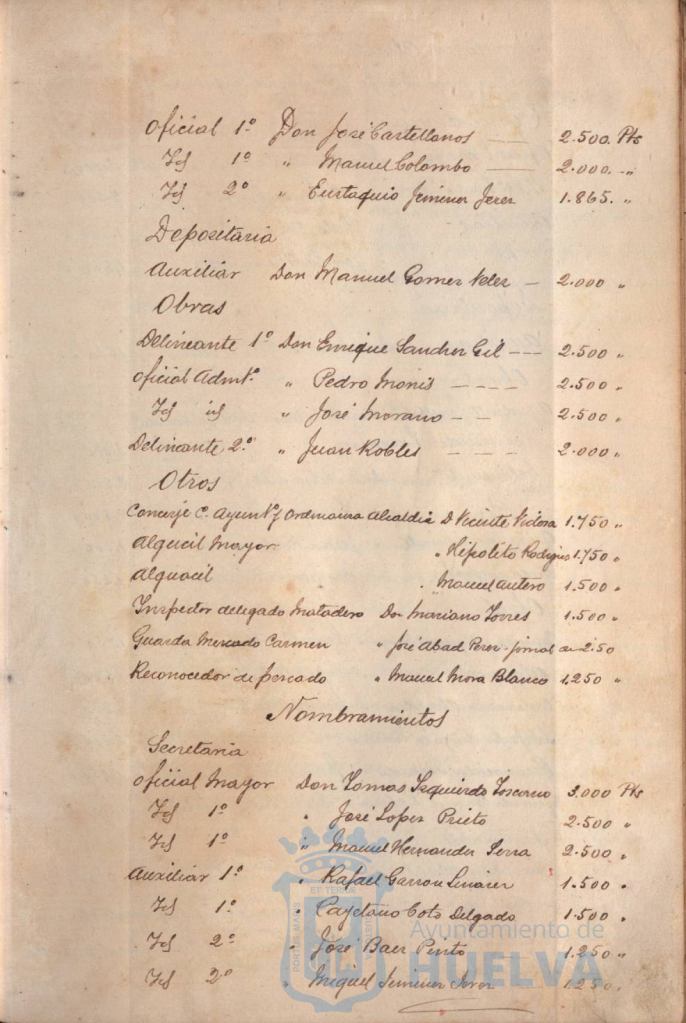 Oficial 1º Don José Castellanos — 2.500. Pts
Id 1º " Manuel Colombo — 2.000. -"
Id 2º " Eustaquio Jimenez Jerez 1.865. "
Depositaria
Auxiliar Don Manuel Gomez Velez — 2.000 "
Obras
Delineante 1º Don Enrique Sanchez Gil --- 2.500 "
Oficial Admtº. " Pedro Monis ---- 2.500 "
Id id " José Morano -- 2.500 "
Delineante 2.º " Juan Robles --- 2.000 "
Otros
Conserje C. Ayunt.º y Ordenanza Alcaldia D Vicente Vidosa 1.750 "
Alguacil Mayor " Hipolito Rodrigues 1.750 "
Alguacil " Manuel Antero 1.500 "
Inspector delegado Matadero Don Mariano Torres 1.500 "
Guarda Mercado Carmen " José Abad Perez - jornal de 2.50
Reconocedor de pescado " Manuel Mora Blanco 1,250 "
Nombramientos
Secretaria
Oficial Mayor Don Tomas Izquierdo 3.000 Pts
Id 1º " José Lopez Prieto 2.500 "
Id 1º " Manuel Hernandez Serra 2.500 "
Auxiliar 1º " Rafael Garzon Linares 1.500 "
Id 1.º " Cayetano Coto Delgado 1.500 "
Id 2º " José Baez Pinto 1.250 "
Id 2º " Miguel Jimenez 1.250
PORTUS MARIS ET TERRAE CUSTODIA
Ayuntamiento de
HUELVA